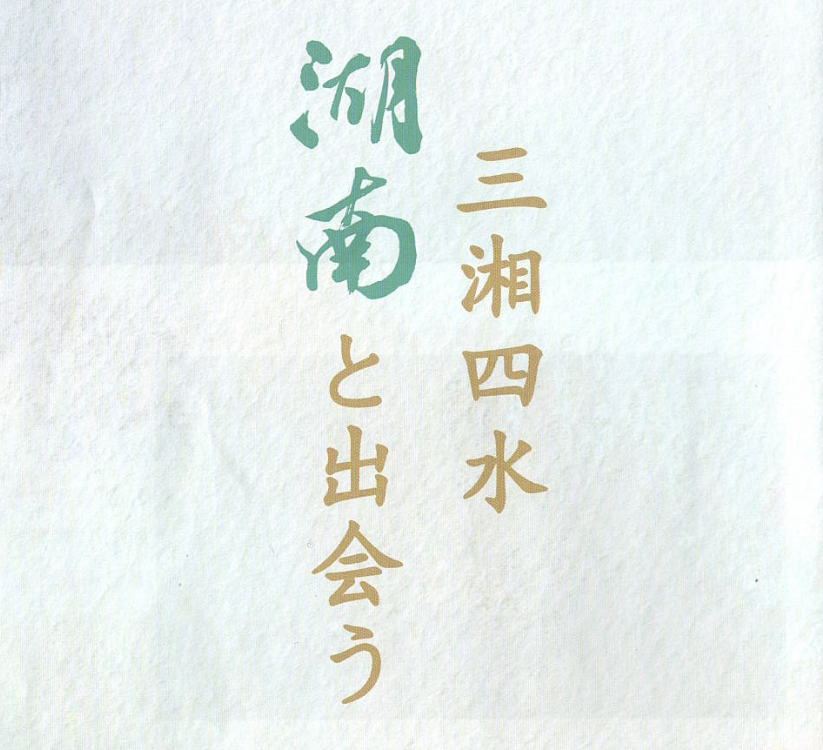 三湘四水
湖南と出会う